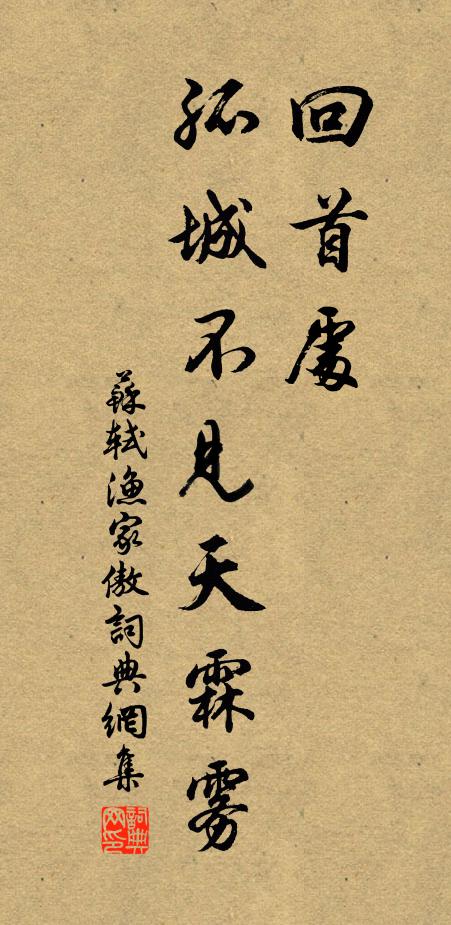 回首處
孤城不見天霖霧
蘇軾漁家傲詞典網集
詞典網印